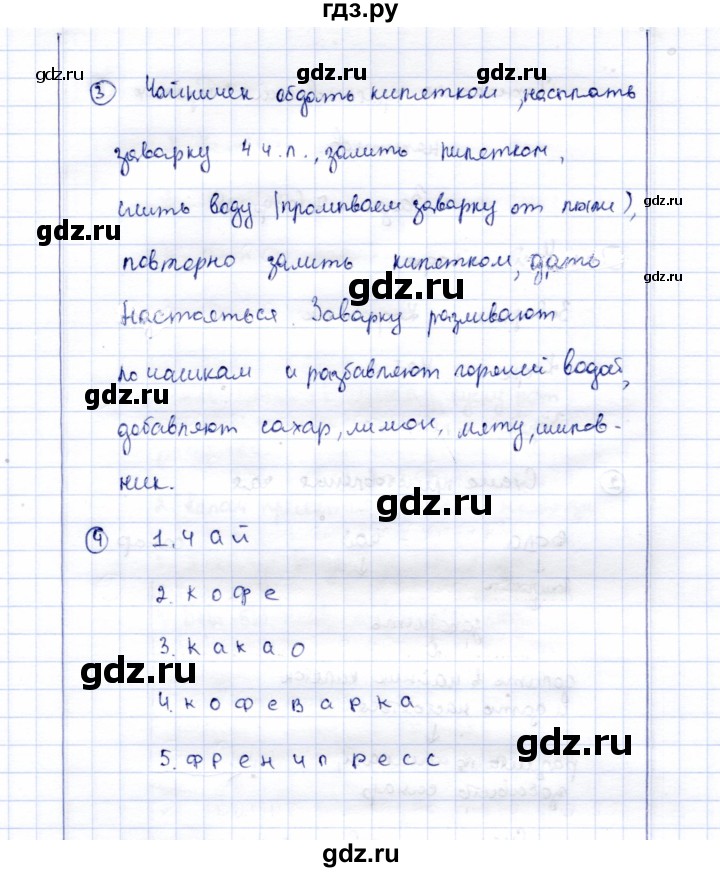 гдз.ру
gdz.ru gdz.ru gdz.ru
③ Чайничек обдать кипятком, насыпать
заварку 4 ч.л., залить кипятком,
слить воду (промываем заварку от пыли),
gdz.ru gdz.ru
повторно залить кипятком, дать
gdz.ru gdz.ru
настояться. Заварку разливают
по чашкам и разбавляют горячей водой,
gdz.ru
добавляют сахар, лимон, мяту, шипов-
ник.
gdz.ru
④ 1. Ч А Й
2. К О Ф Е
3. К А К А О
gdz.ru
4. К О Ф Е В А Р К А
gdz.ru
5. Ф Р Е Н Ч П Р Е С С
gdz.ru